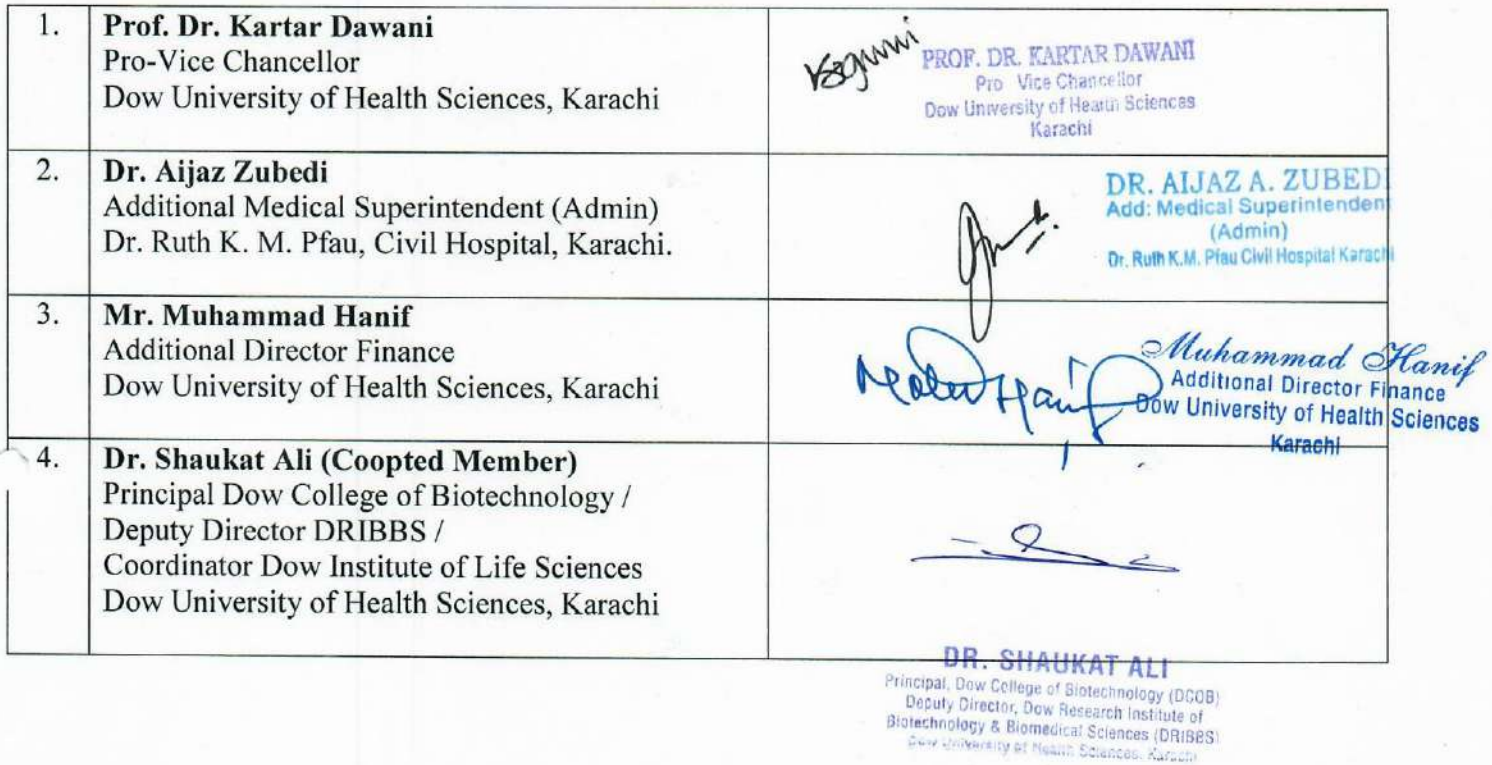 1. Prof. Dr. Kartar Dawani
Pro-Vice Chancellor
Dow University of Health Sciences, Karachi
PROF. DR. KARTAR DAWANI
Pro Vice Chancellor
Dow University of Health Sciences
Karachi
2. Dr. Aijaz Zubedi
Additional Medical Superintendent (Admin)
Dr. Ruth K. M. Pfau, Civil Hospital, Karachi.
DR. AIJAZ A. ZUBEDI
Add: Medical Superintendent
(Admin)
Dr. Ruth K.M. Pfau Civil Hospital Karachi
3. Mr. Muhammad Hanif
Additional Director Finance
Dow University of Health Sciences, Karachi
Muhammad Hanif
Additional Director Finance
Dow University of Health Sciences
Karachi
4. Dr. Shaukat Ali (Coopted Member)
Principal Dow College of Biotechnology /
Deputy Director DRIBBS /
Coordinator Dow Institute of Life Sciences
Dow University of Health Sciences, Karachi
DR. SHAUKAT ALI
Principal, Dow College of Biotechnology (DCOB)
Deputy Director, Dow Research Institute of
Biotechnology & Biomedical Sciences (DRIBBS)
Dow University of Health Sciences, Karachi